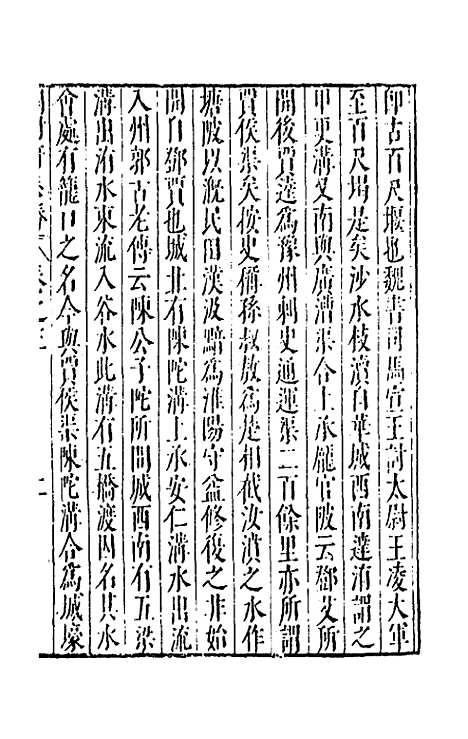 即古百尺堰也魏書司馬宣王討太尉王凌大軍
至百尺堨是矣沙水枝瀆自華城西南達洧謂之
甲更溝又南與廣漕渠合上承龐官陂云鄧艾所
開後賈逵為豫州刺史通運渠二百餘里亦所謂
賈侯渠矣按史稱孫叔敖為楚相截汝濆之水作
塘陂以漑民田漢汲黯為淮陽守益修復之非始
開自鄧賈也城北有陳陀溝上承安仁溝水出流
入州郭古老傳云陳公子陀所開城西南有五梁
溝出洧水東流入谷水此溝有五橋渡因名其水
會處有龍口之名今與賈侯渠陳陀溝合為城壕
卷之三